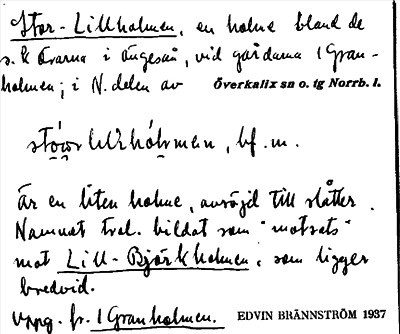 Stor-Lillholmen, en holme bland de
s.k Öarna i Ängesån, vid gårdarna 1 Gran-
holmen; i N. delen av Överkalix sn o. tg Norrb. l.
bf. m.
Är en liten holme, avröjd till slåtter.
Namnet trol. bildat som "motsats"
mot Lill-Björkholmen, som ligger
bredvid.
Uppg. fr. 1 Granholmen. EDVIN BRÄNNSTRÖM 1937